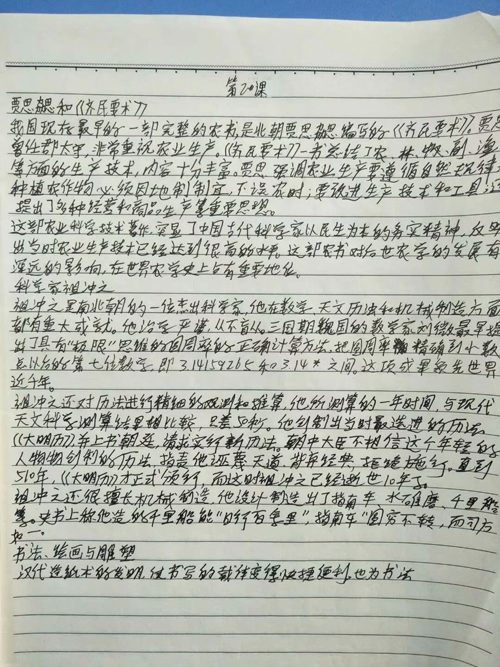 第20课
贾思勰和《齐民要术》
我国现存最早的一部完整的农书是北朝贾思勰编写的《齐民要术》。贾
曾任郡太守,非常重视农业生产。《齐民要术》一书总结了农、林、牧、副、渔
等方面的生产技术,内容十分丰富。贾思 强调农业生产要遵循自然规律
种植农作物必须因地制制宜,不误农时;要改进生产技术和工具;还
提出了多种经营和商品生产等重要思想。
这部农业科学技术著作,突显了中国古代科学家以民生为本的务实精神,反映
出当时农业生产技术已经达到很高的水平。这部农书对后世农学的发展有
深远的影响,在世界农学史上占有重要地位。
科学家祖冲之
祖冲之是南北朝的一位杰出科学家,他在数学、天文历法和机械制造方面
都有重大成就。他治学严谨,从不盲从。三国期魏国的数学家刘徽最早提
出了具有"极限"思维的圆周率的正确计算方法,把圆周率 精确到小数
点以后的第七位数字,即3.14159265和3.14 之间。这项成果领先世界
近千年。
祖冲之还对历法进行精细的观测和推算,他所测算的一年时间,与现代
天文科学测算结果相比较,只差50秒。他创制出当时最先进的历法
《大明历》,并上书朝廷,请求实行新历法。朝中大臣不相信这个年轻的
人物物创制的历法,指责他诬蔑天道,背弃经典,拒绝施行,直到
510年,《大明历》才正式颁行,而这时祖冲之已经逝世10年了。
祖冲之还很擅长机械制造,他设计制造出了指南车、水碓磨、千里船
等。史书上称他造的千里船能"日行百余里",指南车"圆穷不转,而司方
如一。
书法、绘画与雕塑
汉代造纸术的发明,使书写的载体变得快捷便利,也为书法